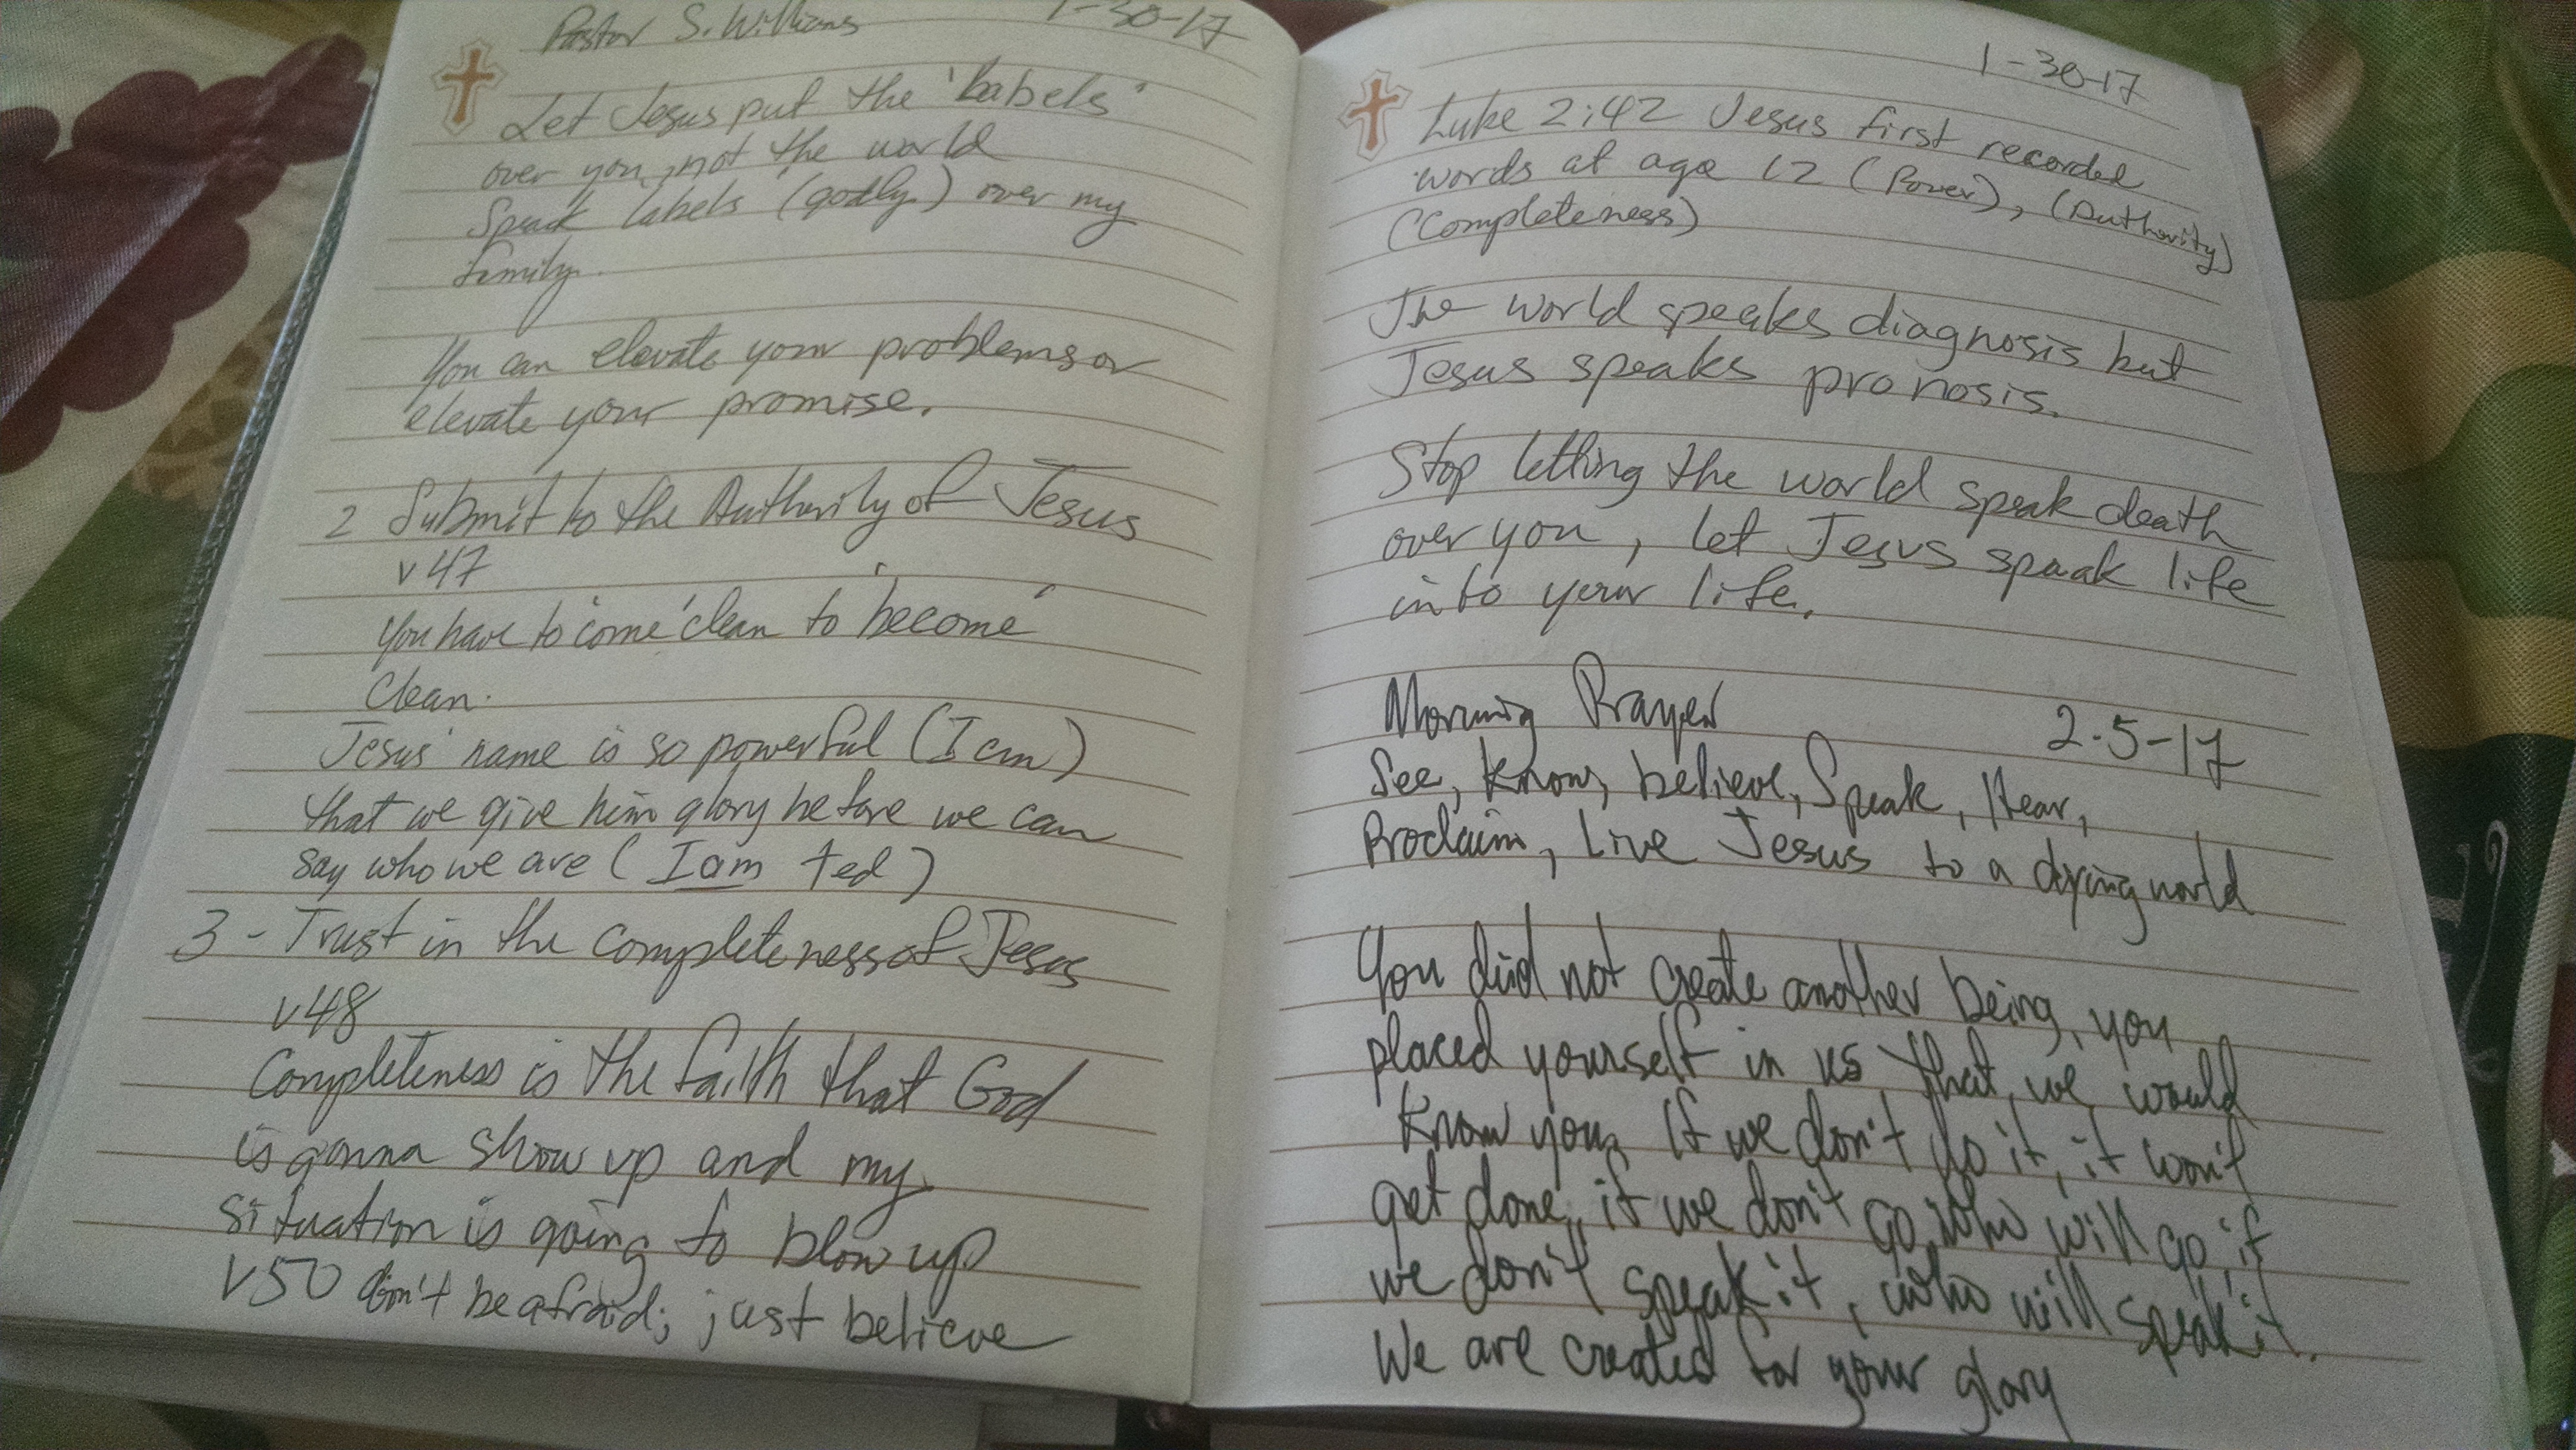 Pastor S. Williams 1-30-17
Let Jesus put the 'Labels'
over you, not the world
Speak labels (godly) over my
family.
You can elevate your problems or
elevate your promise.
2 Submit to the Authority of Jesus
v47
You have to 'come' clean to 'become'
clean.
Jesus' name is so powerful (I am)
that we give him glory before we can
say who we are (I am Ted)
3 - Trust in the completeness of Jesus
v48
Completeness is the faith that God
is gonna show up and my
situation is going to blow up
v50 don't be afraid; just believe
1-30-17
Luke 2:42 Jesus first recorded
words at age 12 (Power), (Authority)
(Completeness)
The world speaks diagnosis but
Jesus speaks pronosis.
Stop letting the world speak death
over you, let Jesus speak life
into your life.
Morning Prayer 2-5-17
See, Know, believe, Speak, Hear,
Proclaim, Live Jesus to a dying world
You did not create another being, you
placed yourself in us that we would
know you, If we don't do it, it won't
get done, if we don't go who will go, if
we don't speak it, who will speak it.
We are created for your glory